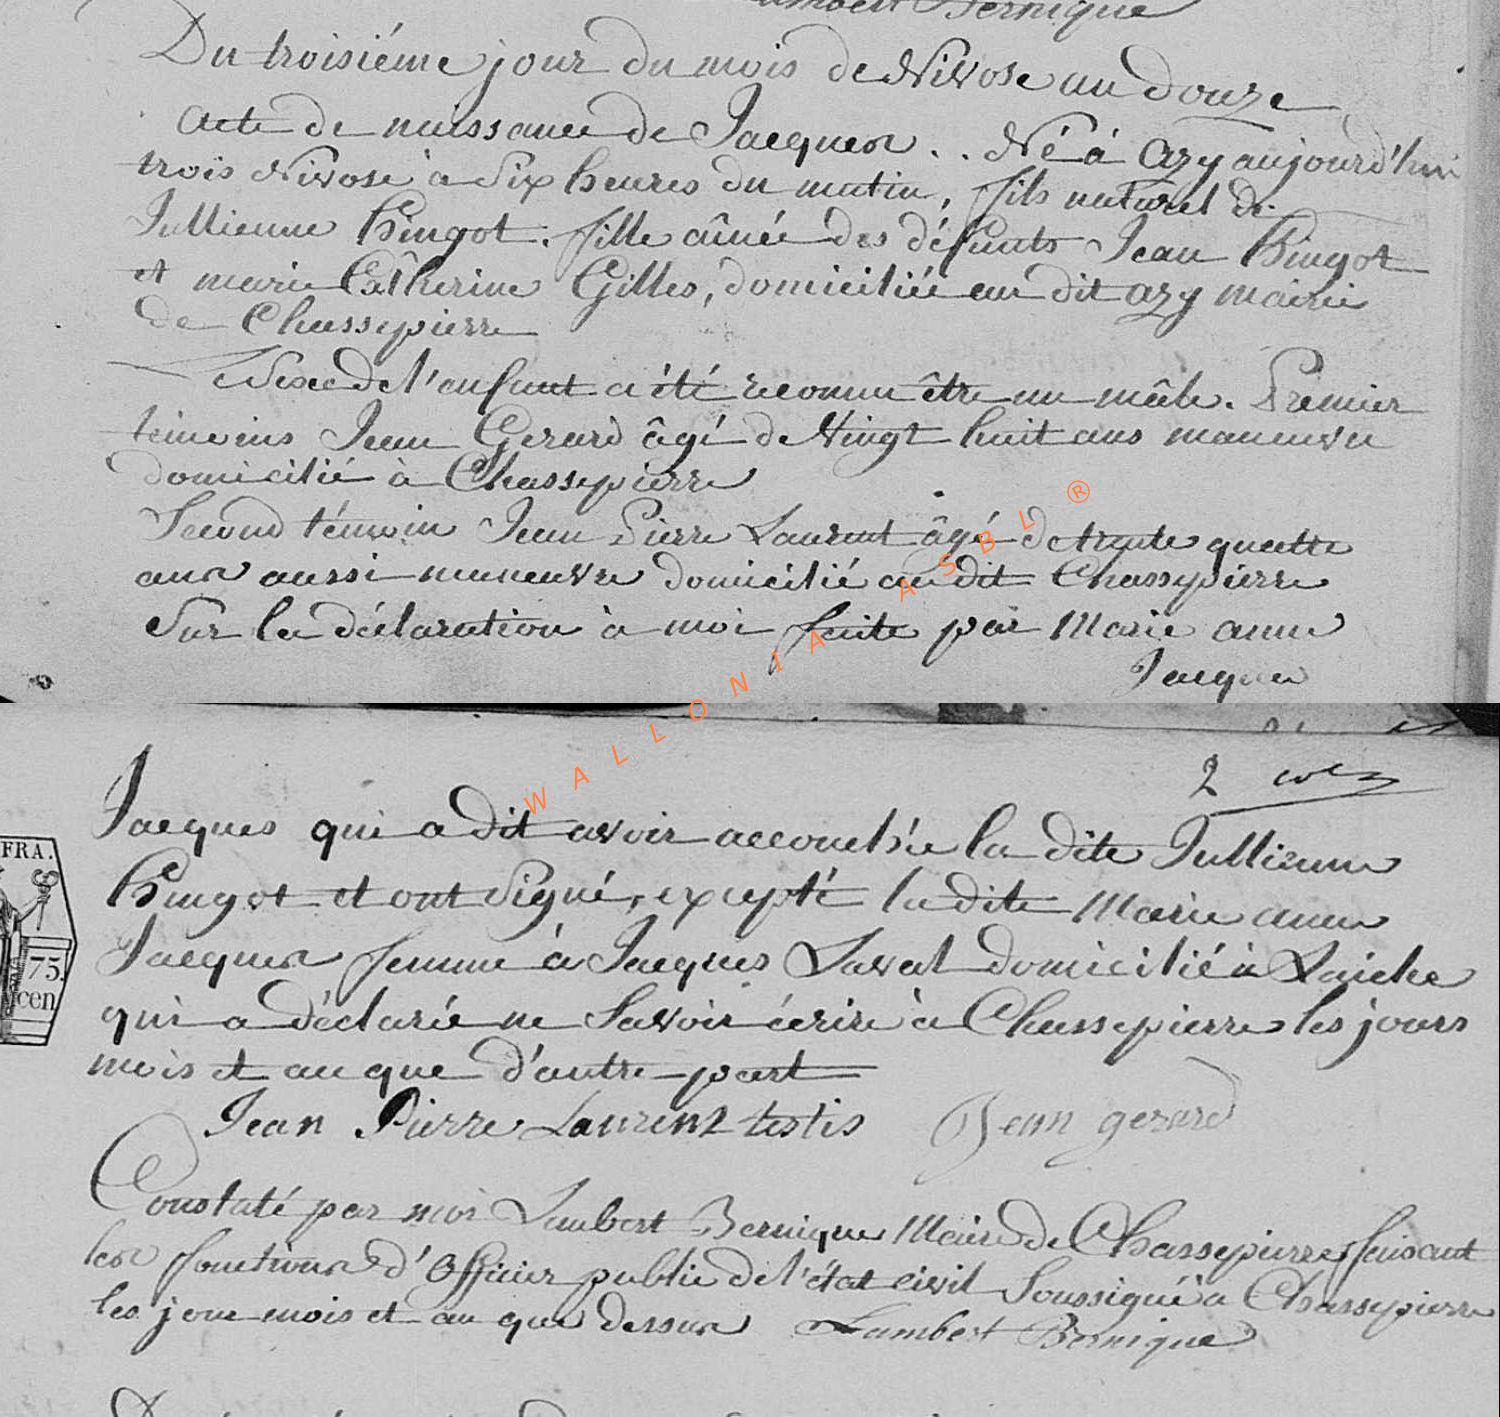 Lambert Bernique
Du troisiéme jour du mois de Nivose an douze
Acte de naissance de Jacques .. Né à Azy aujourd'hui
trois Nivose à Six heures du matin, fils naturel de
Jullienne Hingot. fille aînée des défunts Jean Hingot
et marie Catherine Gilles, domiciliée au dit azy mairie
de Chassepierre
le Sexe de l'enfant a été reconnu être un mâle. Premier
témoins Jean Gerard âgé de Vingt huit ans maneuvre
domicilié à Chassepierre
Second témoin Jean Pierre Laurent âgé de trente quattre
ans aussi maneuvre domicilié au dit Chassepierre
Sur la déclaration à moi faite par Marie anne
Jacques
WALLONIA ASBL ®
2
Jacques qui a dit avoir accouchée la dite Jullienne
Hingot et ont Signé, excepté la dite Marie anne
Jacques femme à Jacques Laval domicilié à Laiche
FRA.
75.
cen
qui a déclarée ne Savoir écrire à Chassepierre les jours
mois et an que d'autre part
Jean Pierre Laurent testis Jean gerard
Constaté par moi Lambert Bernique Maire de Chassepierre faisant
les fonctions d'Officier public de l'état civil Soussigné à Chassepierre
les jour mois et an que dessus Lambert Bernique